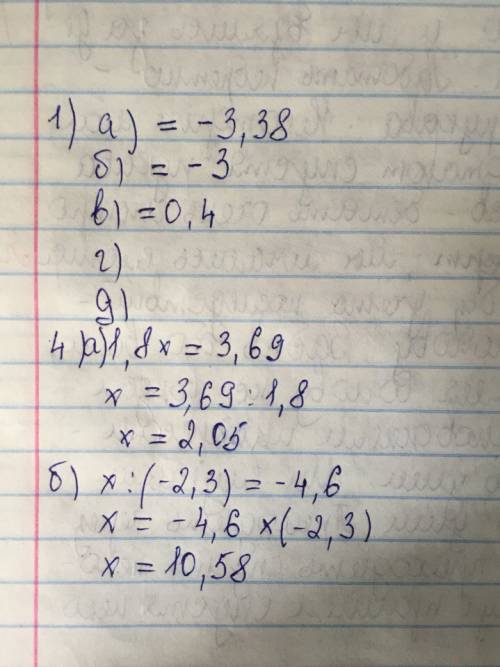 1) а) = -3,38
б) = -3
в) = 0,4
г)
д)
4 а) 1,8x = 3,69
x = 3,69 : 1,8
x = 2,05
б) x : (-2,3) = -4,6
x = -4,6 x (-2,3)
x = 10,58